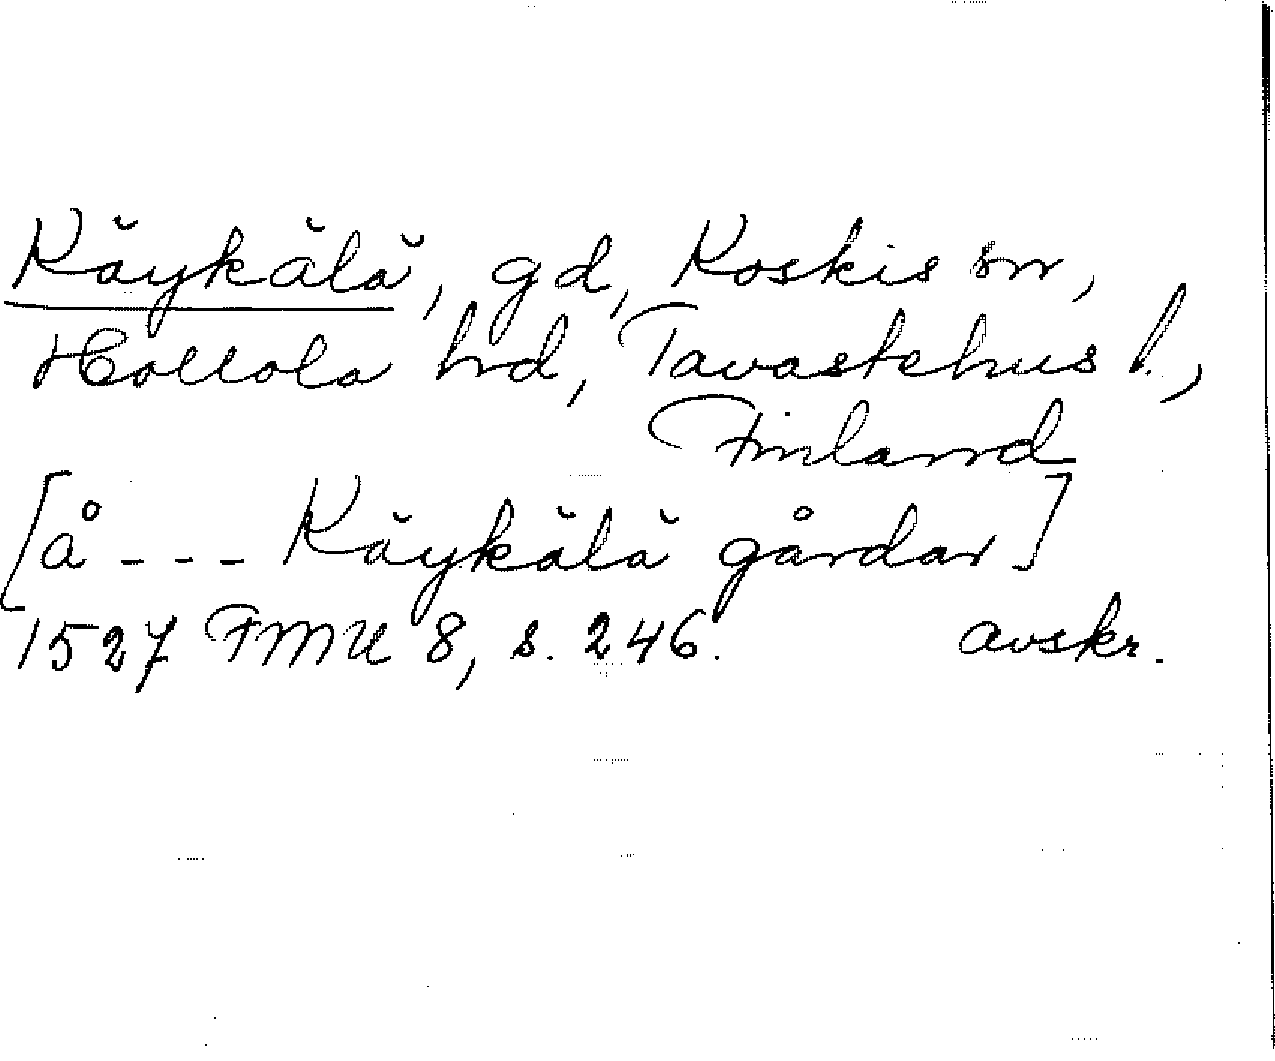 Käykälä, gd, Koskis sn,
Hollola hrd, Tavastehus l.,
Finland
[å - - - Käykälä gårdar]
1527 FMU 8, s. 246. avskr.